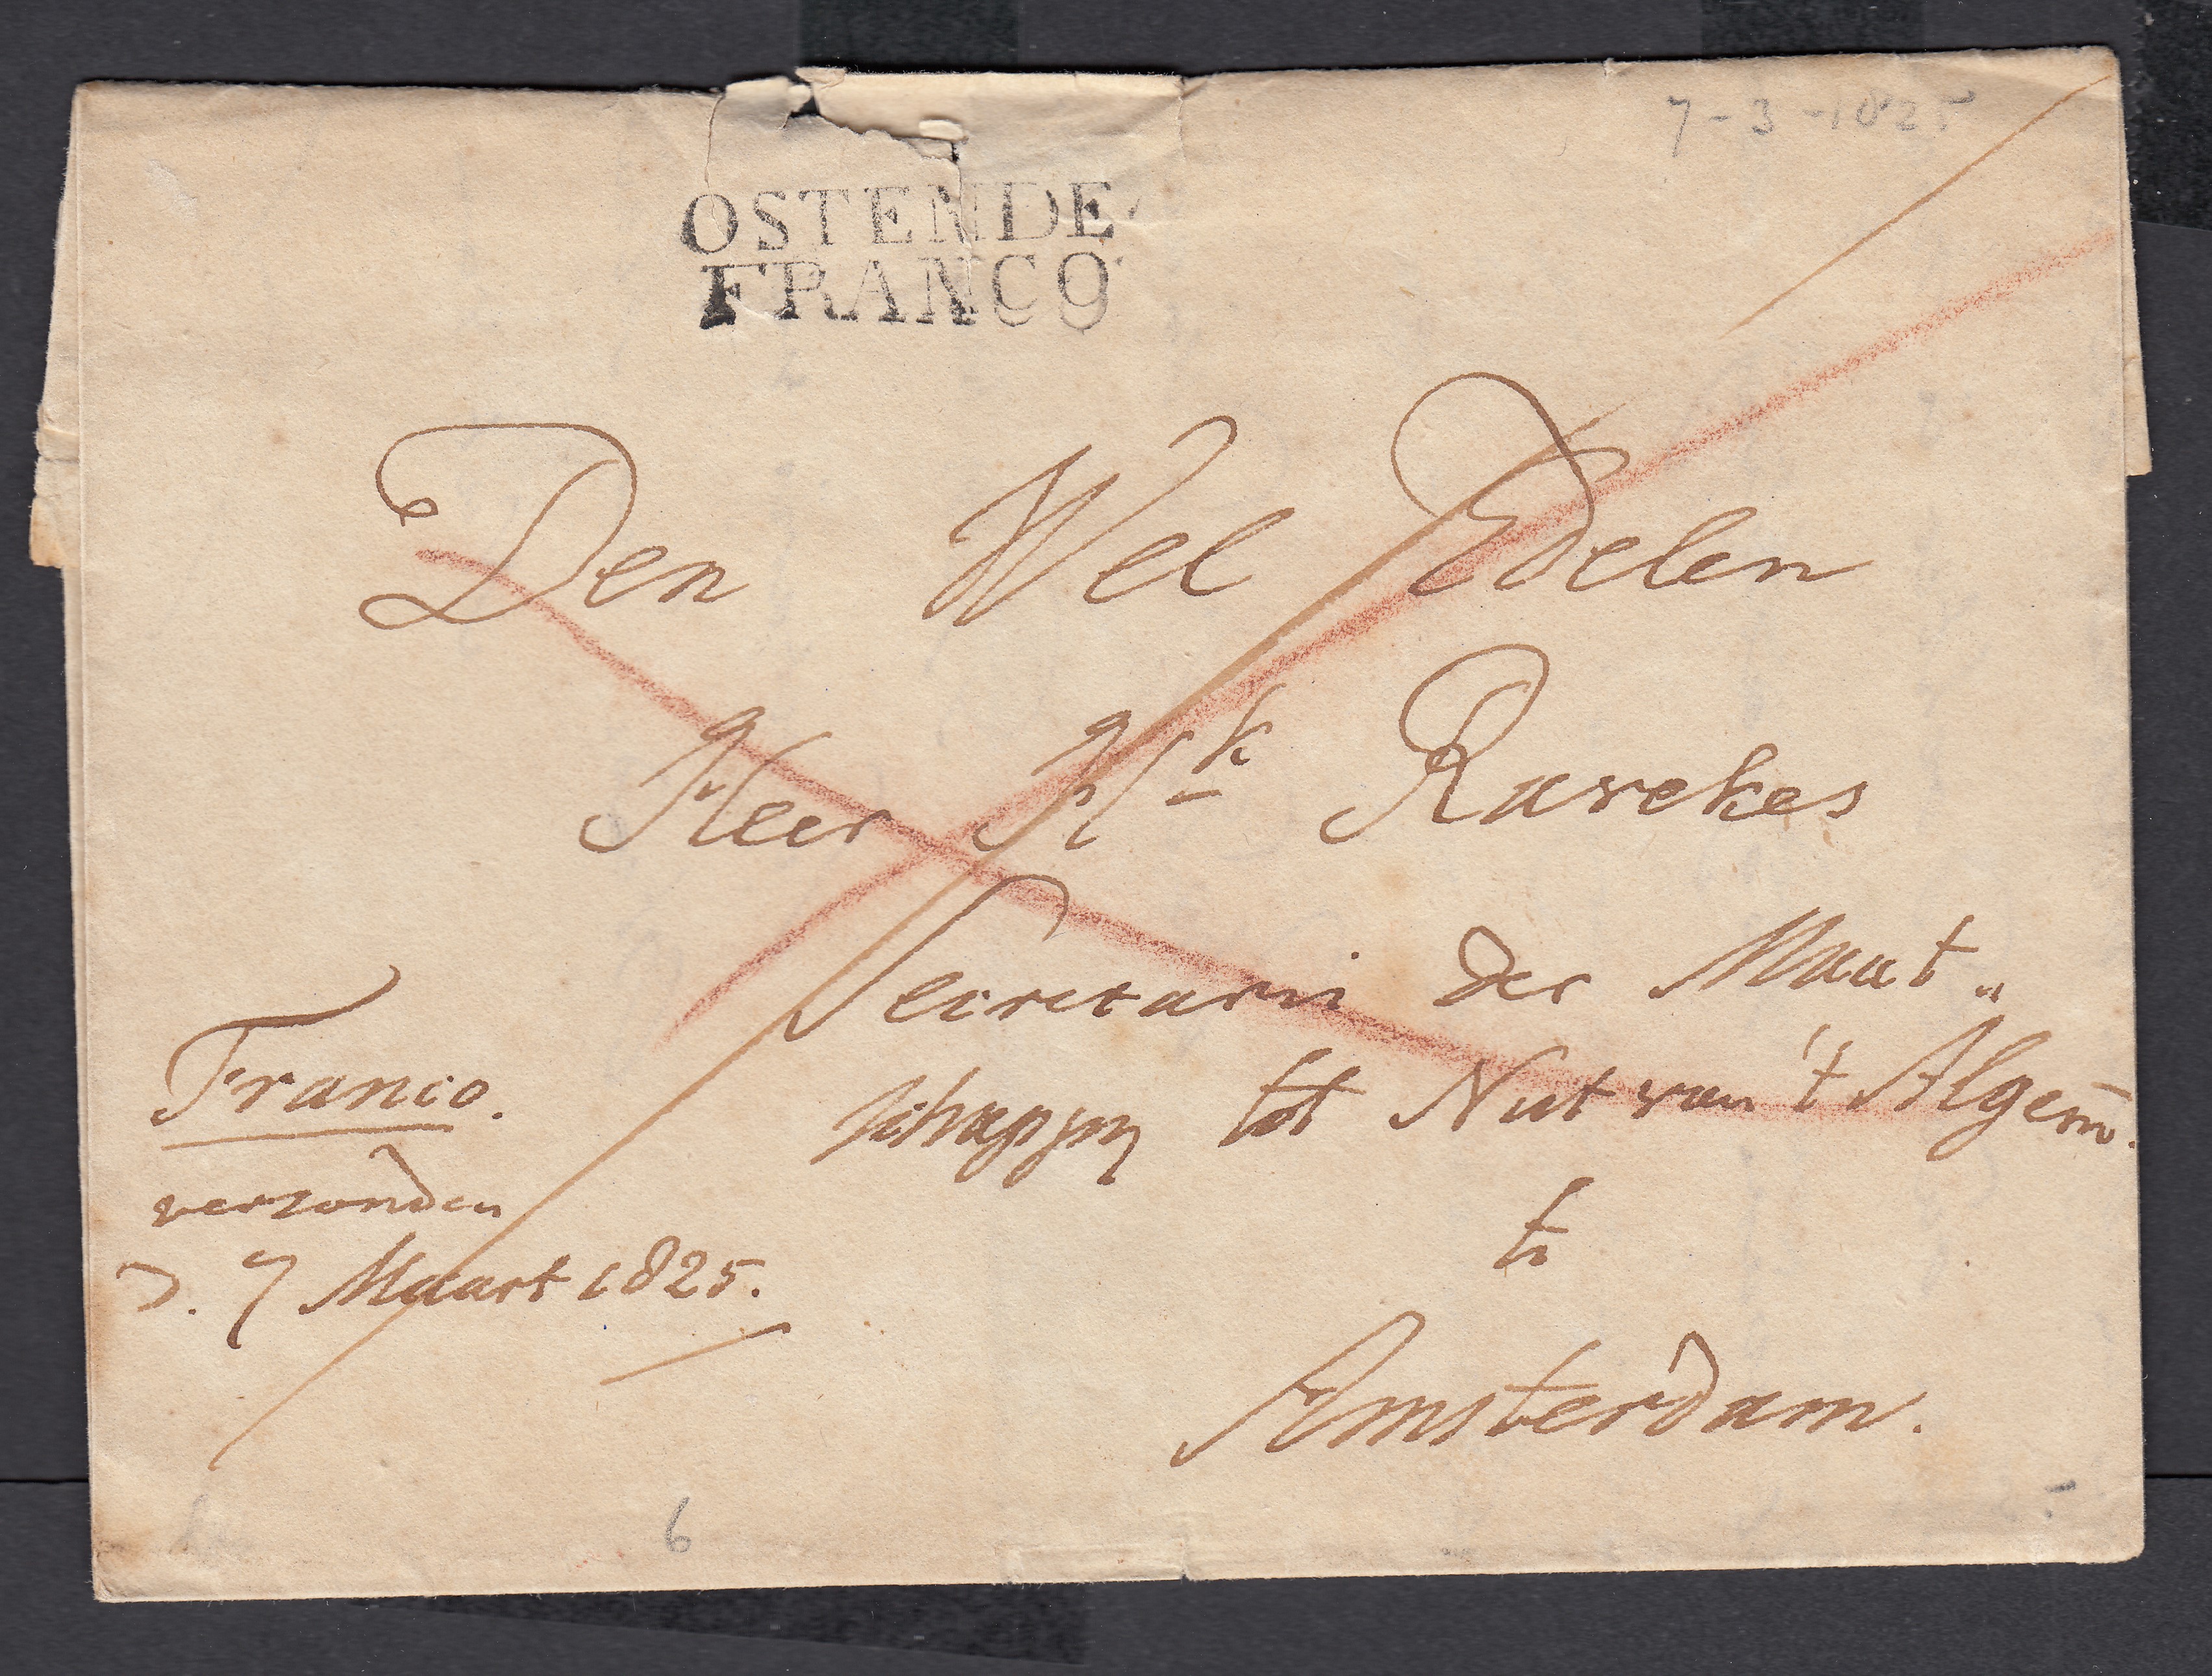 7-3-1825
OSTENDE
FRANCO
Den Wel Edelen
Heer Hk Ravekes
Secretaris der Maat„
schappij tot Nut van 't Algem.
te
Amsterdam.
Franco.
verzonden
d. 7 Maart 1825.
6